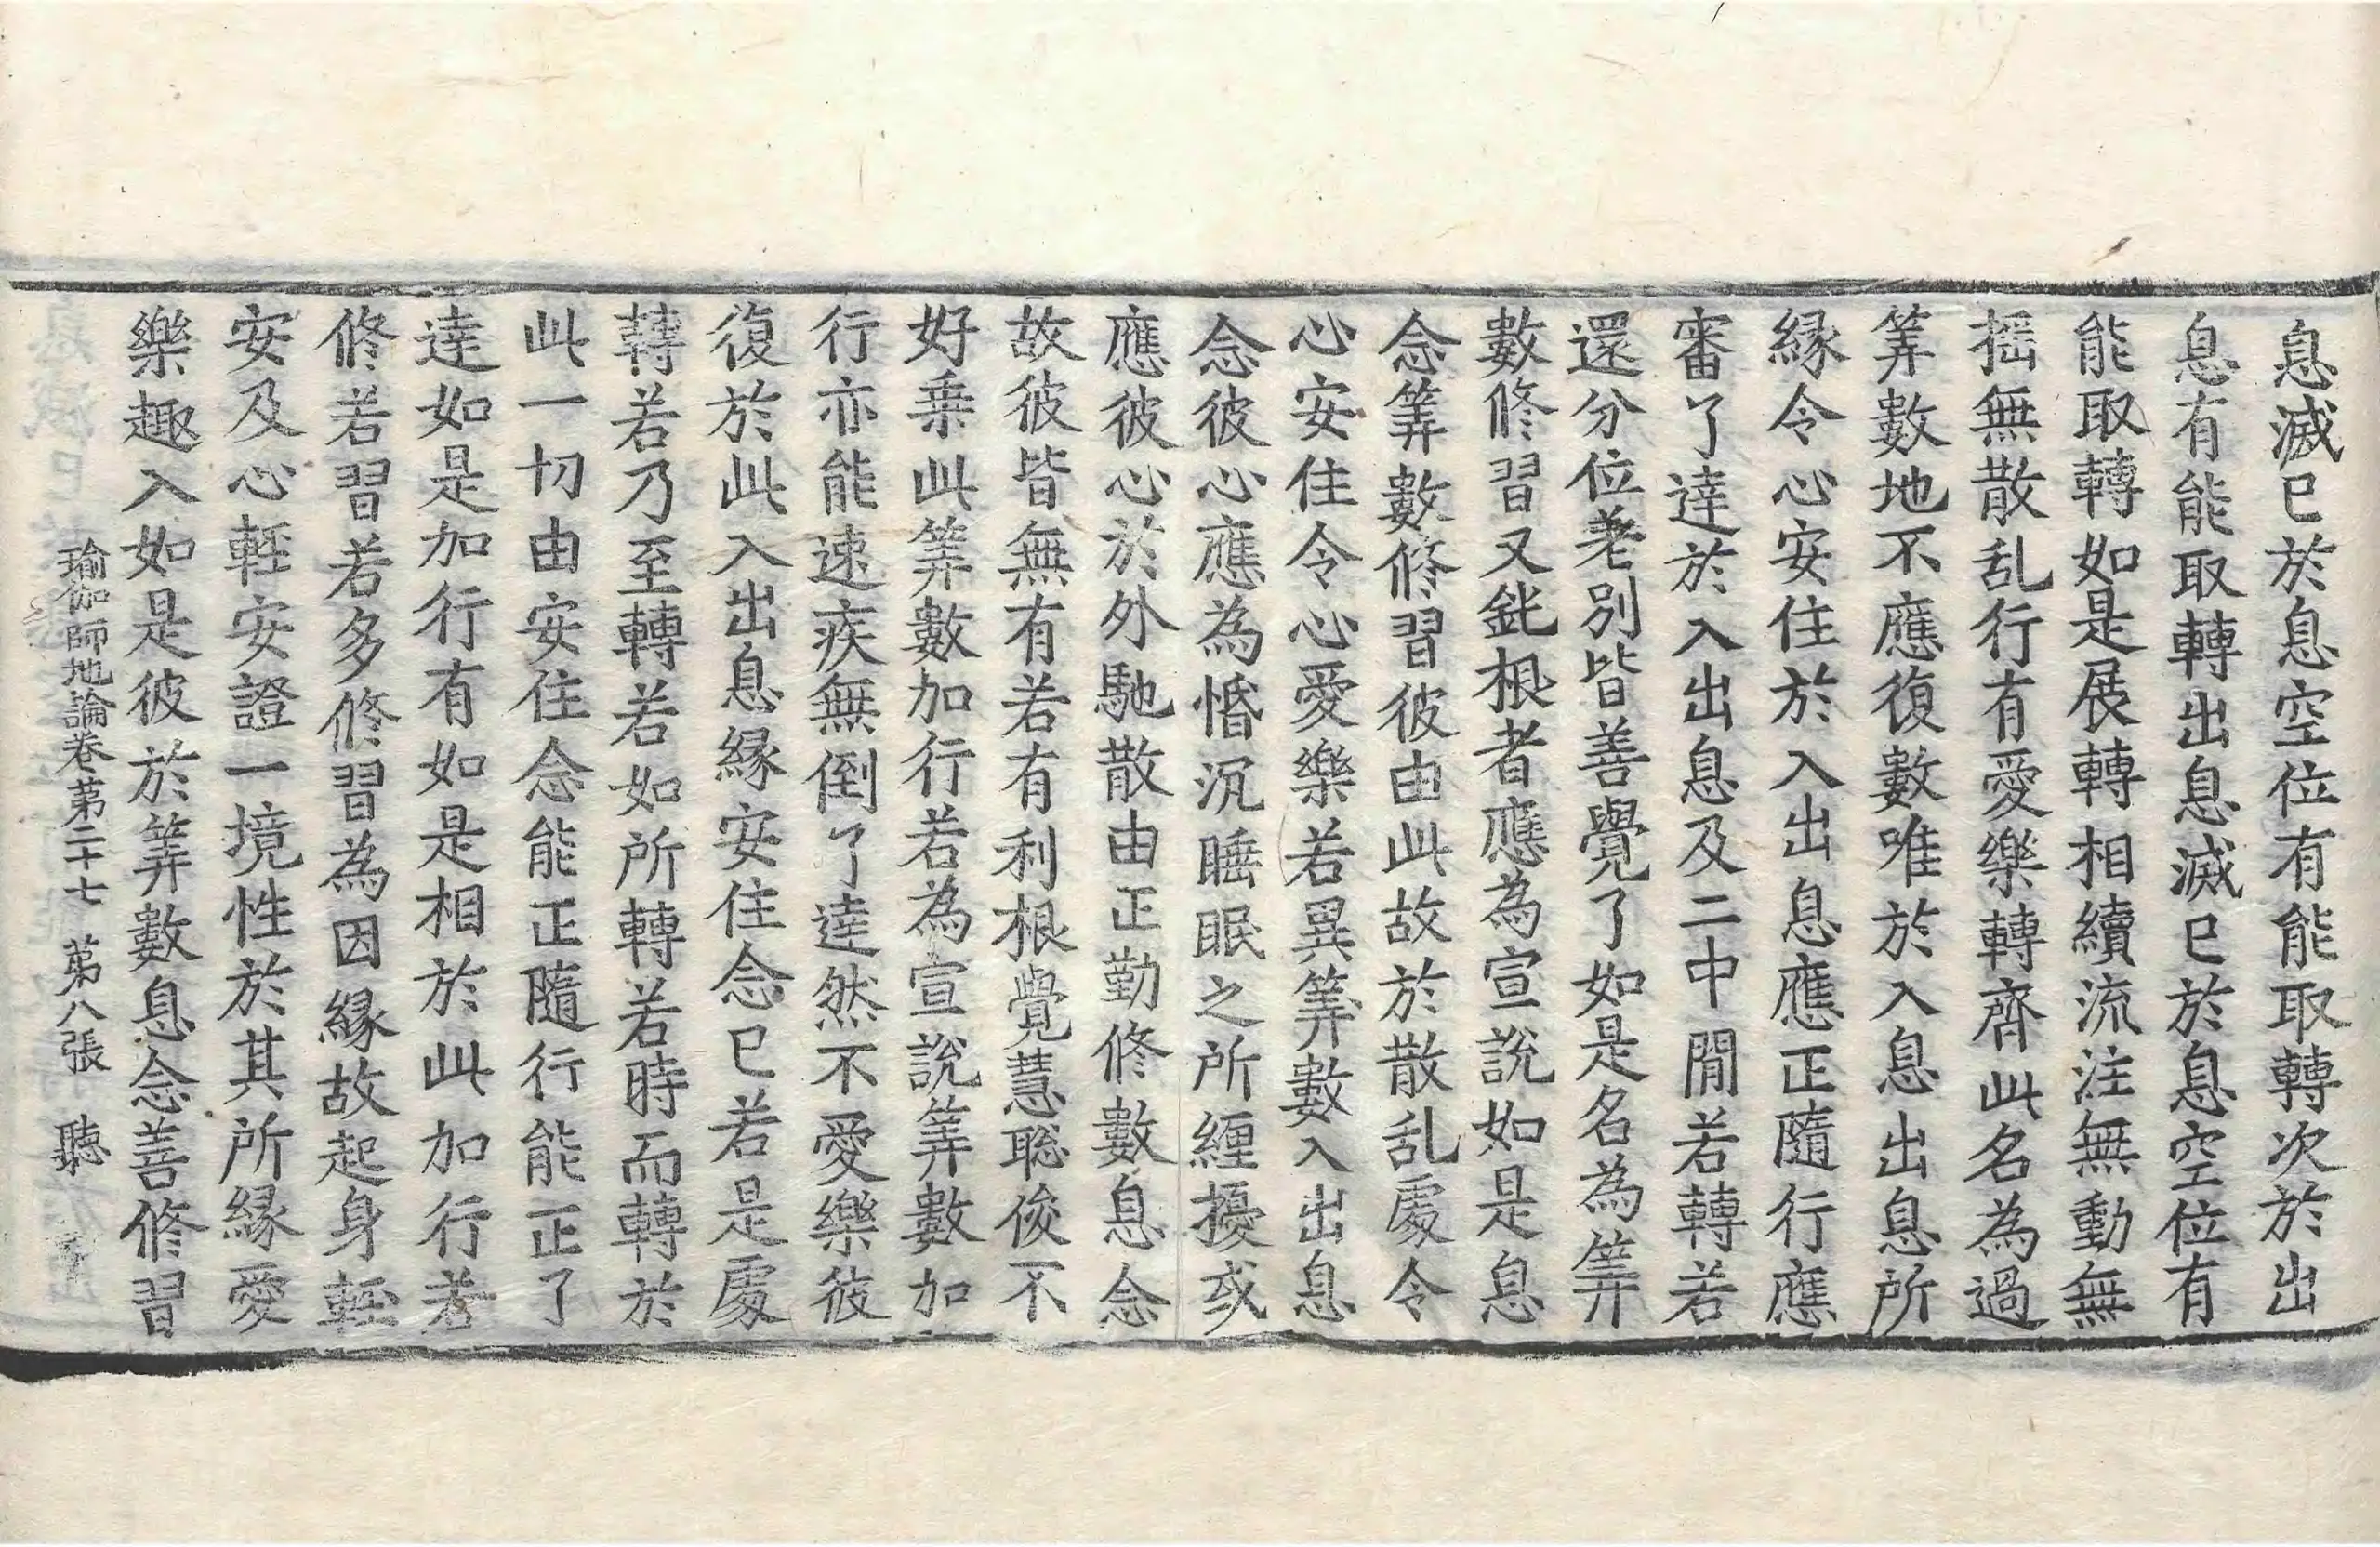 息滅已於息空位有能取轉次於出
息有能取轉出息滅已於息空位有
能取轉如是展轉相續流注無動無
揺無散乱行有愛樂轉齊此名為過
筭數地不應復數唯於入息出息所
縁令心安住於入出息應正隨行應
審了達於入出息及二中閒若轉若
還分位差別皆善覺了如是名為筭
數修習又鈍根者應為宣說如是息
念筭數修習彼由此故於散乱處令
心安住令心愛樂若異筭數入出息
念彼心應為惛沉睡眠之所纏擾或
應彼心於外馳散由正勤修數息念
故彼皆無有若有利根覺慧聡俊不
好乗此筭數加行若為宣說筭數加
行亦能速疾無倒了達然不愛樂彼
復於此入出息縁安住念已若是處
轉若乃至轉若如所轉若時而轉於
此一切由安住念能正隨行能正了
達如是加行有如是相於此加行若
修若習若多修習為因縁故起身輕
安及心輕安證一境性於其所縁愛
樂趣入如是彼於筭數息念善修習
瑜伽師地論卷第二十七　第八張　聽